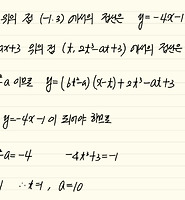 위의 점 (-1, 3) 에서의 접선은 y=-4x-1
ax+3 위의 점 (t, 2t³-at+3) 에서의 접선은
-a 이므로 y=(6t²-a)(x-t)+2t³-at+3
y=-4x-1 이 되어야 하므로
a=-4 -4t³+3=-1
∴ t=1, a=10